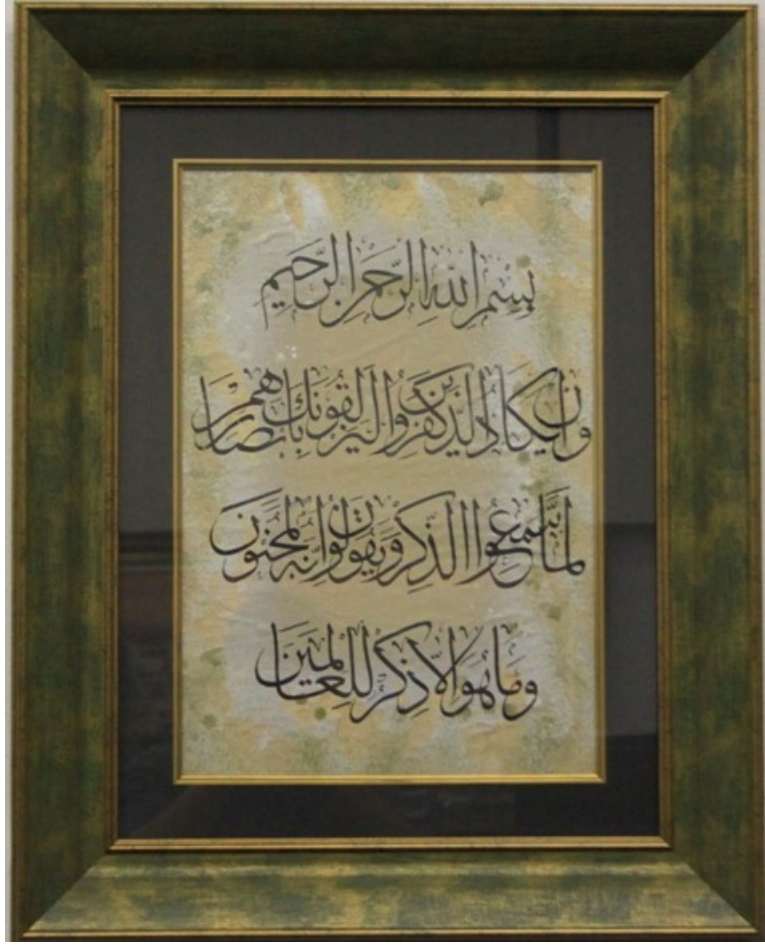 بِسْمِ اللهِ الرَّحْمنِ الرَّحيم
وَاِن يَكَادُ الَّذينَ كَفَرُوا لَيُزلِقُونَكَ بِاَبْصَارِهِمْ
لَمَّا سَمِعُوا الذِّكْرَ وَيَقُولُونَ اِنَّهُ لَمَجْنُون
وَمَا هُوَ اِلّا ذِكْرٌ لِلْعَالَمينَ